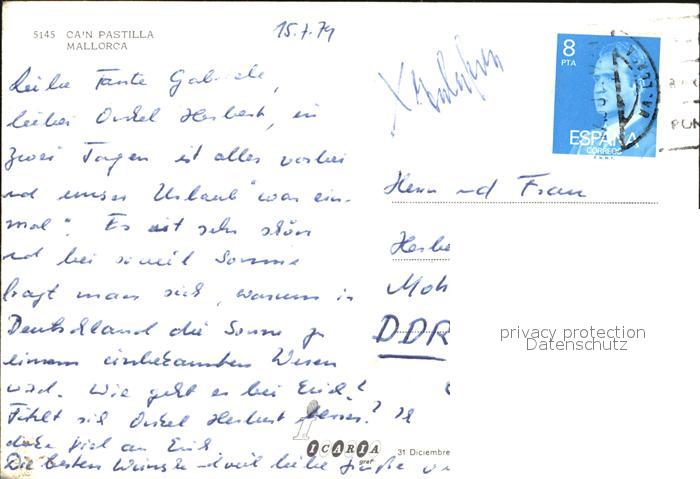 5145 CA'N PASTILLA
MALLORCA
15.7.79
Liebe Tante Gabriele,
lieber Onkel Herbert, in
zwei Tagen ist alles vorbei
und unser Urlaub "war ein-
mal". Es ist sehr schön
und bei soviel Sonne
fragt man sich, warum in
Deutschland die Sonne zu
einem unbekannten Wesen
wird. Wie geht es bei Euch?
Fühlt sich Onkel Herbert besser? Ich
denke viel an Euch
Die besten Wünsche und viele liebe Grüße
8
PTA
ESPAÑA
CORREOS
F.N.M.T.
Herrn und Frau
Herbe
Moh
DDR
privacy protection
Datenschutz
ICARIA
graf
31 Diciembre